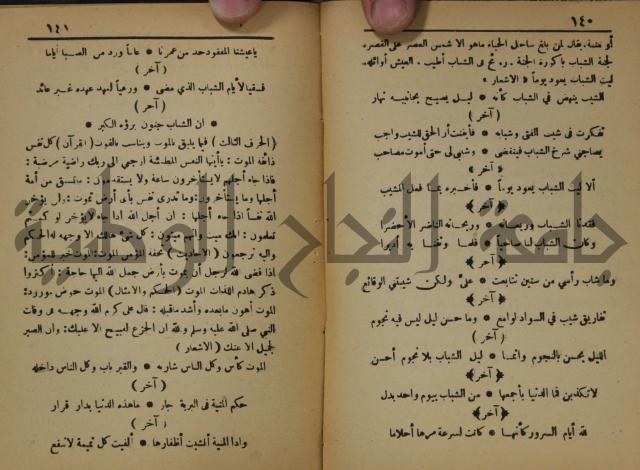 ١٤٠
أو هضبة. يقال لمن بلغ ساحل الحياة ماهو الا شمس العصر على القصر،
لجنة الشباب باكورة الجنة . وفي الشباب أطيب . العيش أوائله.
ليت الشباب يعود يوماً « الاشعار »
الشيب ينهض في الشباب كأنه • ليل يصيح بجانبيه نهار
( آخر )
تفكرت في شيب الفتى وشبابه • فأيقنت أن الحق للشيب واجب
يصاحبني شرخ الشباب فينقضي • وشيبي لي حتى أموت مصاحب
« آخر »
ألا ليت الشباب يعود يوماً • فأخبره بما فعل المشيب
﴿ آخر ﴾
فقدنا الشباب وريعانه • وريحانه الناضر الأخضرا
وكان الشباب لنا صاحباً
﴿ آخر ﴾
وما شاب رأسي من سنين تتابعت • عليّ ولكن شيبتني الوقائع
﴿ آخر ﴾
تفاريق شيب في السواد لوامع • وما حسن ليل ليس فيه نجوم
( آخر )
الليل يحسن بالنجوم وانما • ليل الشباب بلا نجوم أحسن
﴿ آخر ﴾
لا تكذبن فما الدنيا بأجمعها • من الشباب بيوم واحد بدل
﴿ آخر ﴾
لله أيام السرور كأنها • كانت لسرعة مرها أحلاما
١٤١
ياعيشنا المفقود خذ من عمرنا • عاماً ورد من الصبا أياما
( آخر )
فسقيا لأيام الشباب الذي مضى • ورعياً لعهد عهده غير عائد
( آخر )
• ان الشباب جنون برؤه الكبر •
( الحرف الثالث ) فيما يليق بالموت ويناسب مالفوت ( القرآن ) كل نفس
ذائقة الموت : يا أيتها النفس المطمئنة ارجعي الى ربك راضية مرضية :
فاذا جاء أجلهم لا يستأخرون ساعة ولا يستقدمون : ماتسبق من أمة
أجلها وما يستأخرون: وما تدرى نفس بأي أرض تموت : ولن يؤخر
الله نفساً اذا جاء أجلها : ان أجل الله اذا جاء لا يؤخر لو كنتم
تعلمون : انك ميت وانهم ميتون : كل شيء هالك الا وجهه له الحكم
واليه ترجعون ( الأحاديث ) تحفة المؤمن الموت : الموت خير للمؤمن:
اذا قضى الله لرجل أن يموت بأرض جعل الله اليها حاجة : أكثروا
ذكر هادم اللذات الموت ( الحكم والامثال ) الموت حوض مورود:
الموت أهون مابعده وأشد ماقبله : قال على كرم الله وجهه في وفات
النبي صلى الله عليه وسلم والله ان الجزع لقبيح الا عليك: وان الصبر
لجميل الا عنك ( الاشعار )
الموت كأس وكل الناس شاربه • والقبر باب وكل الناس داخله
( آخر )
حكم المنية في البرية جار • ماهذه الدنيا بدار قرار
( آخر )
واذا المنية أنشبت أظفارها • ألفيت كل تميمة لا تنفع
جامعة النجاح الوطنية